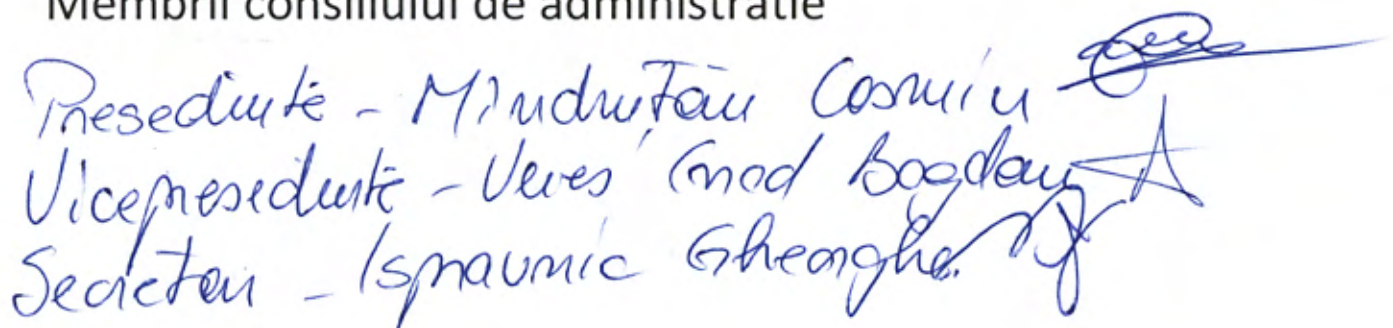 Membrii consiliului de administratie
Presedinte - Mîndruțău Cosmin
Vicepresedinte - Veres Gnod Bogdan
Secretar - Ispravnic Gheorghe